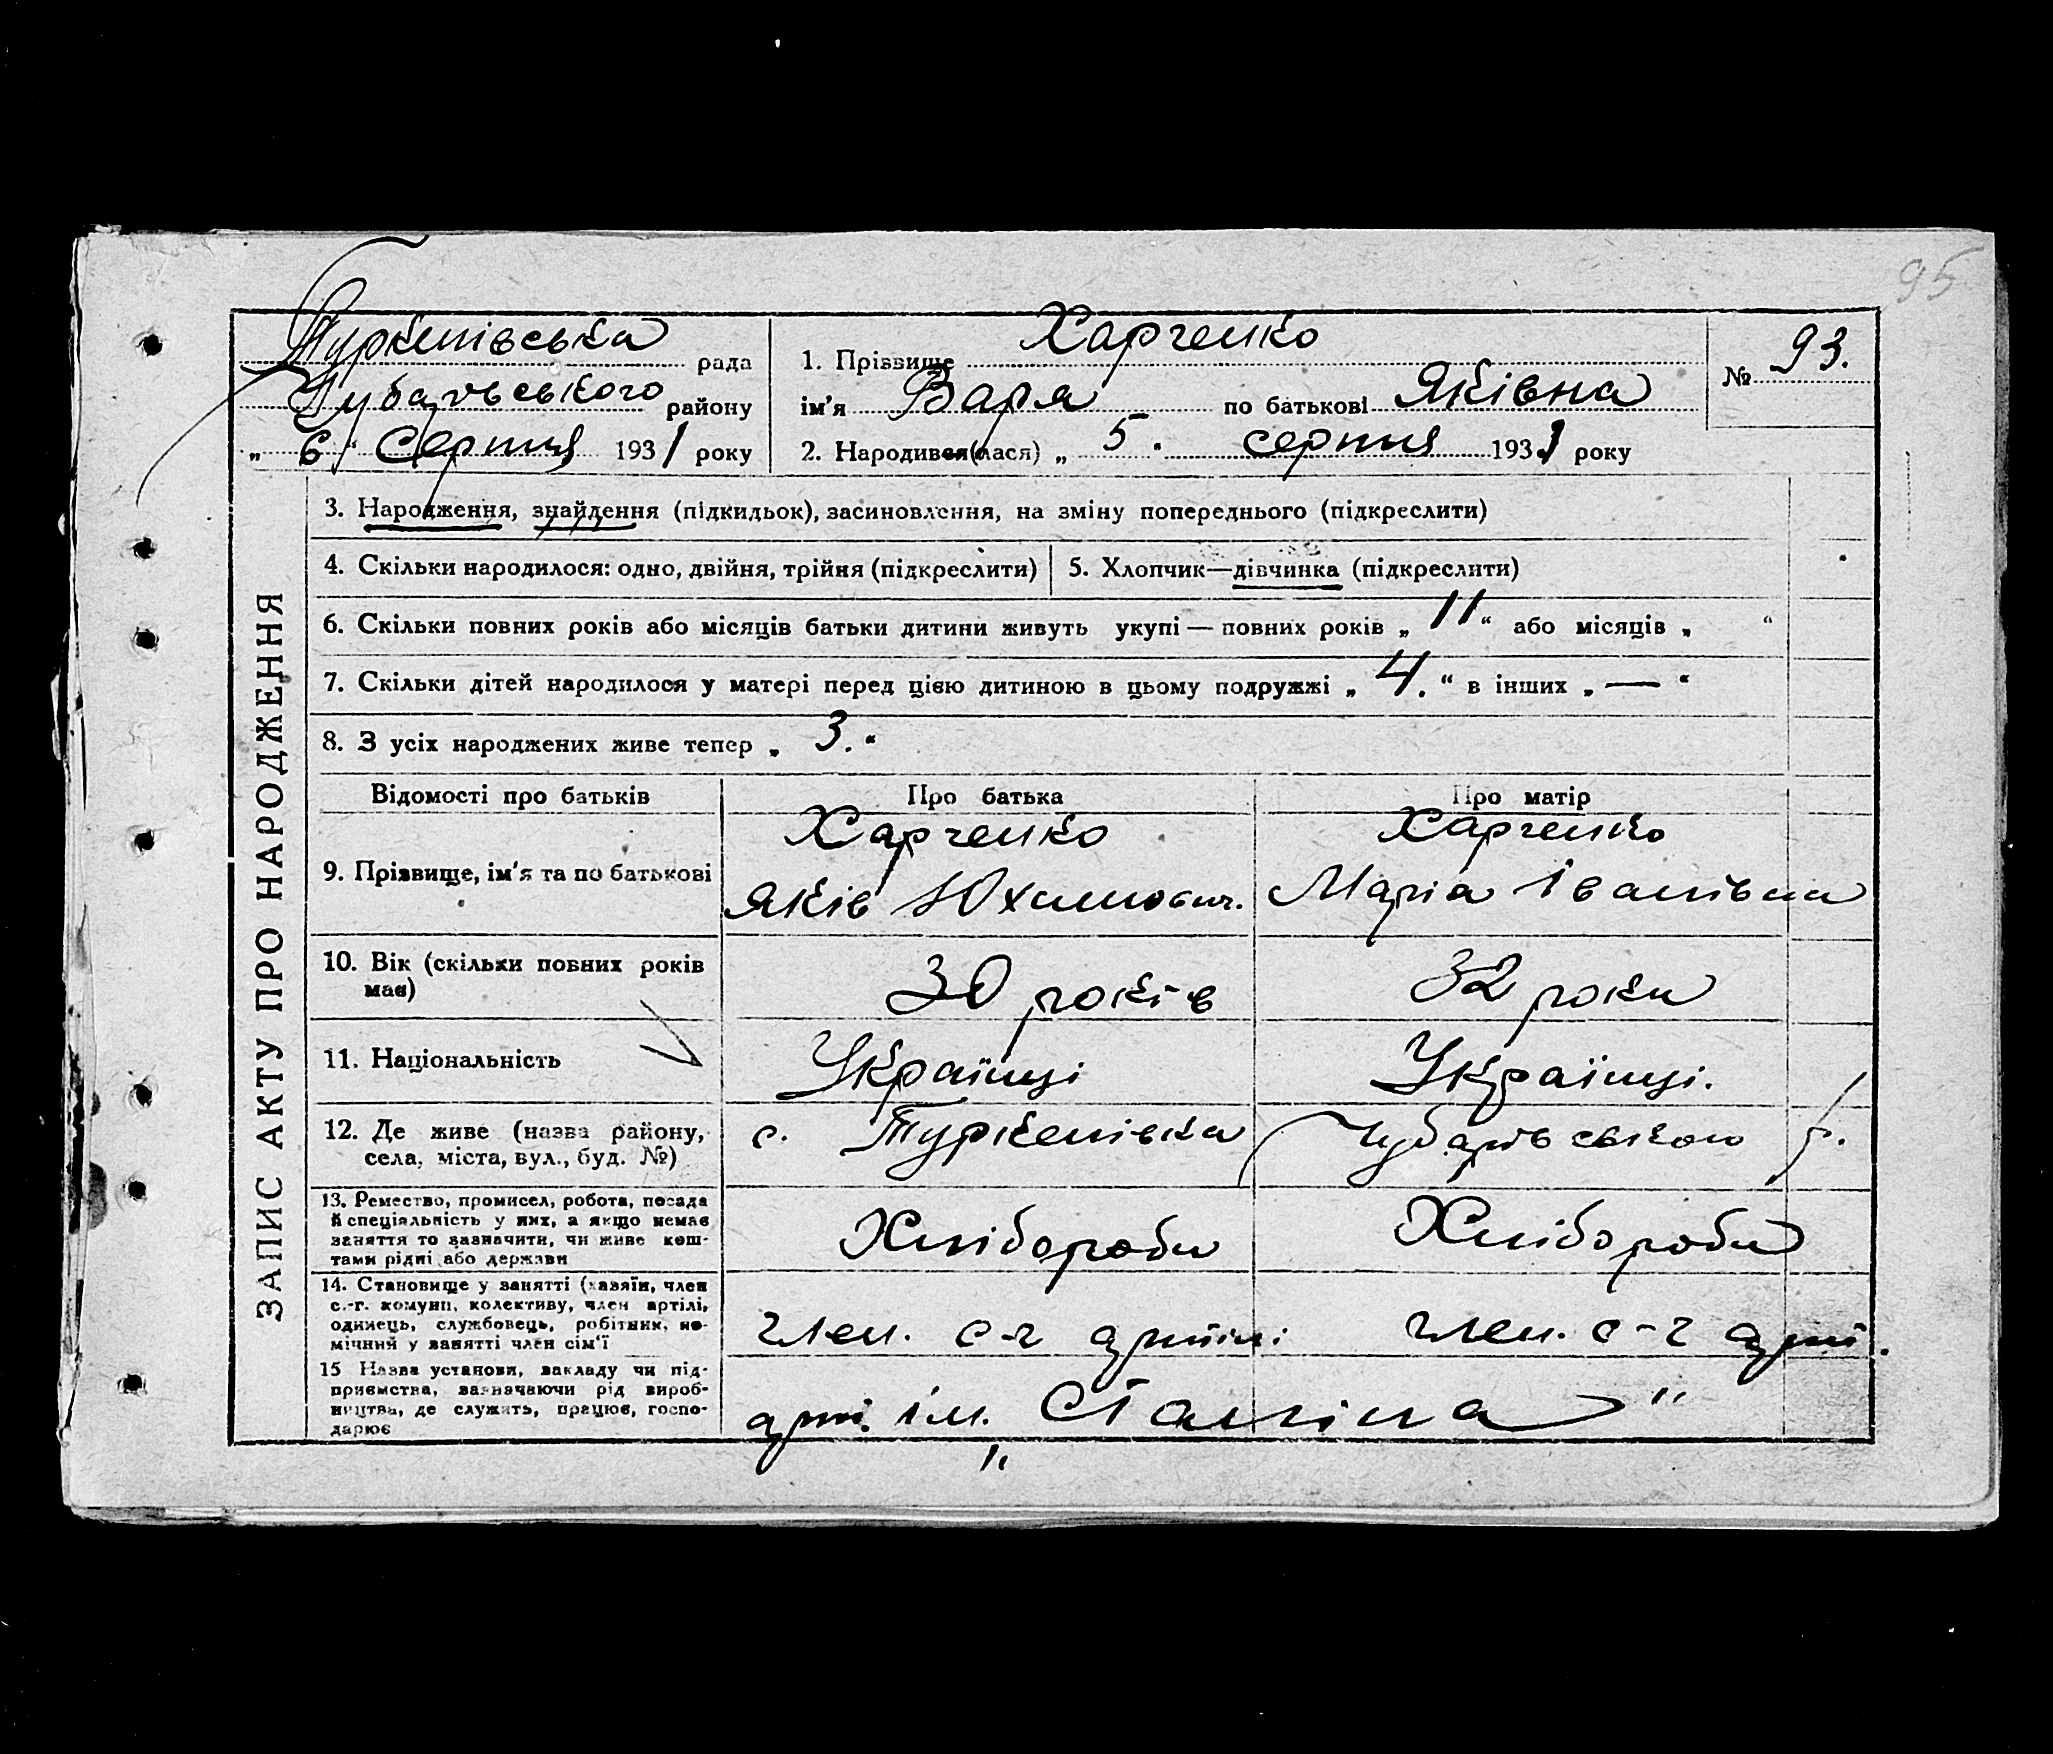 95
Туркенівська рада
Чубарівського району
„ 6 “ Серпня 1931 року
1. Прізвище Харченко
ім'я Варя по батькові Яківна
2. Народився(лася) „ 5. серпня 1931 року
№ 93.
ЗАПИС АКТУ ПРО НАРОДЖЕННЯ
3. Народження, знайдення (підкидьок), засиновлення, на зміну попереднього (підкреслити)
4. Скільки народилося: одно, двійня, трійня (підкреслити) 5. Хлопчик—дівчинка (підкреслити)
6. Скільки повних років або місяців батьки дитини живуть укупі — повних років „ 11 “ або місяців „ “
7. Скільки дітей народилося у матері перед цією дитиною в цьому подружжі „ 4. “ в інших „ — “
8. З усіх народжених живе тепер „ 3. “
Відомості про батьків Про батька Про матір
9. Прізвище, ім'я та по батькові
Харченко
Яків Юхимович.
Харченко
Марія Іванівна
10. Вік (скільки повних років
має)
30 років
32 роки
11. Національність
Українці
Українці.
12. Де живе (назва району,
села, міста, вул., буд. №)
с. Туркенівка Чубарівського р.
13. Ремество, промисел, робота, посада
й спеціяльність у них, а якщо немає
заняття то зазначити, чи живе кош-
тами рідні або держави
Хлібороби
Хлібороби
14. Становище у занятті (хазяїн, член
с.-г. комуни, колективу, член артілі,
одинець, службовець, робітник, по-
мічний у занятті член сім'ї
член. с-г артілі
член. с-г арті.
15 Назва установи, закладу чи під-
приємства, зазначаючи рід вироб-
ництва, де служить, працює, госпо-
дарює
арті. ім. „Сталіна"